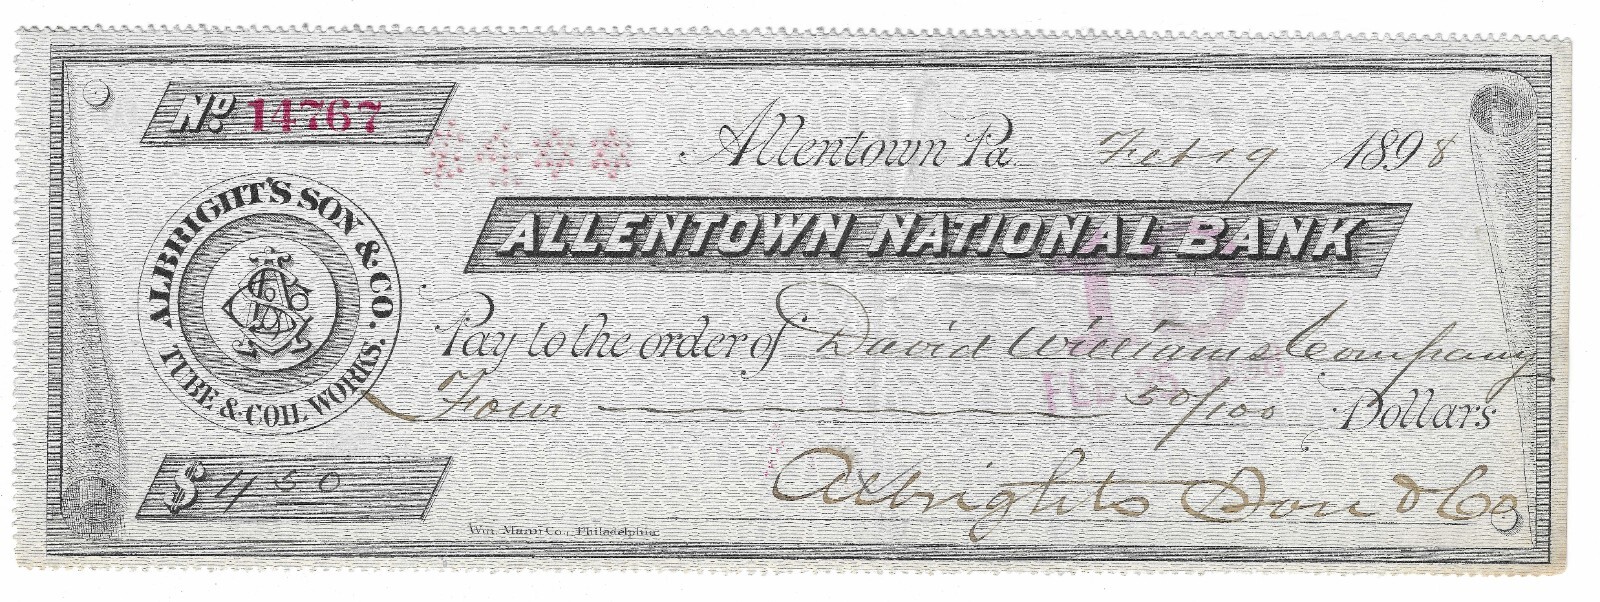 No. 14767
Allentown Pa. Feb 19 1898
ALBRIGHT'S SON & CO.
TUBE & COIL WORKS.
ALLENTOWN NATIONAL BANK
Pay to the order of David Williams Company
Four 50/100 Dollars
$ 4 50
Albrights Son & Co
Wm. Mann Co., Philadelphia